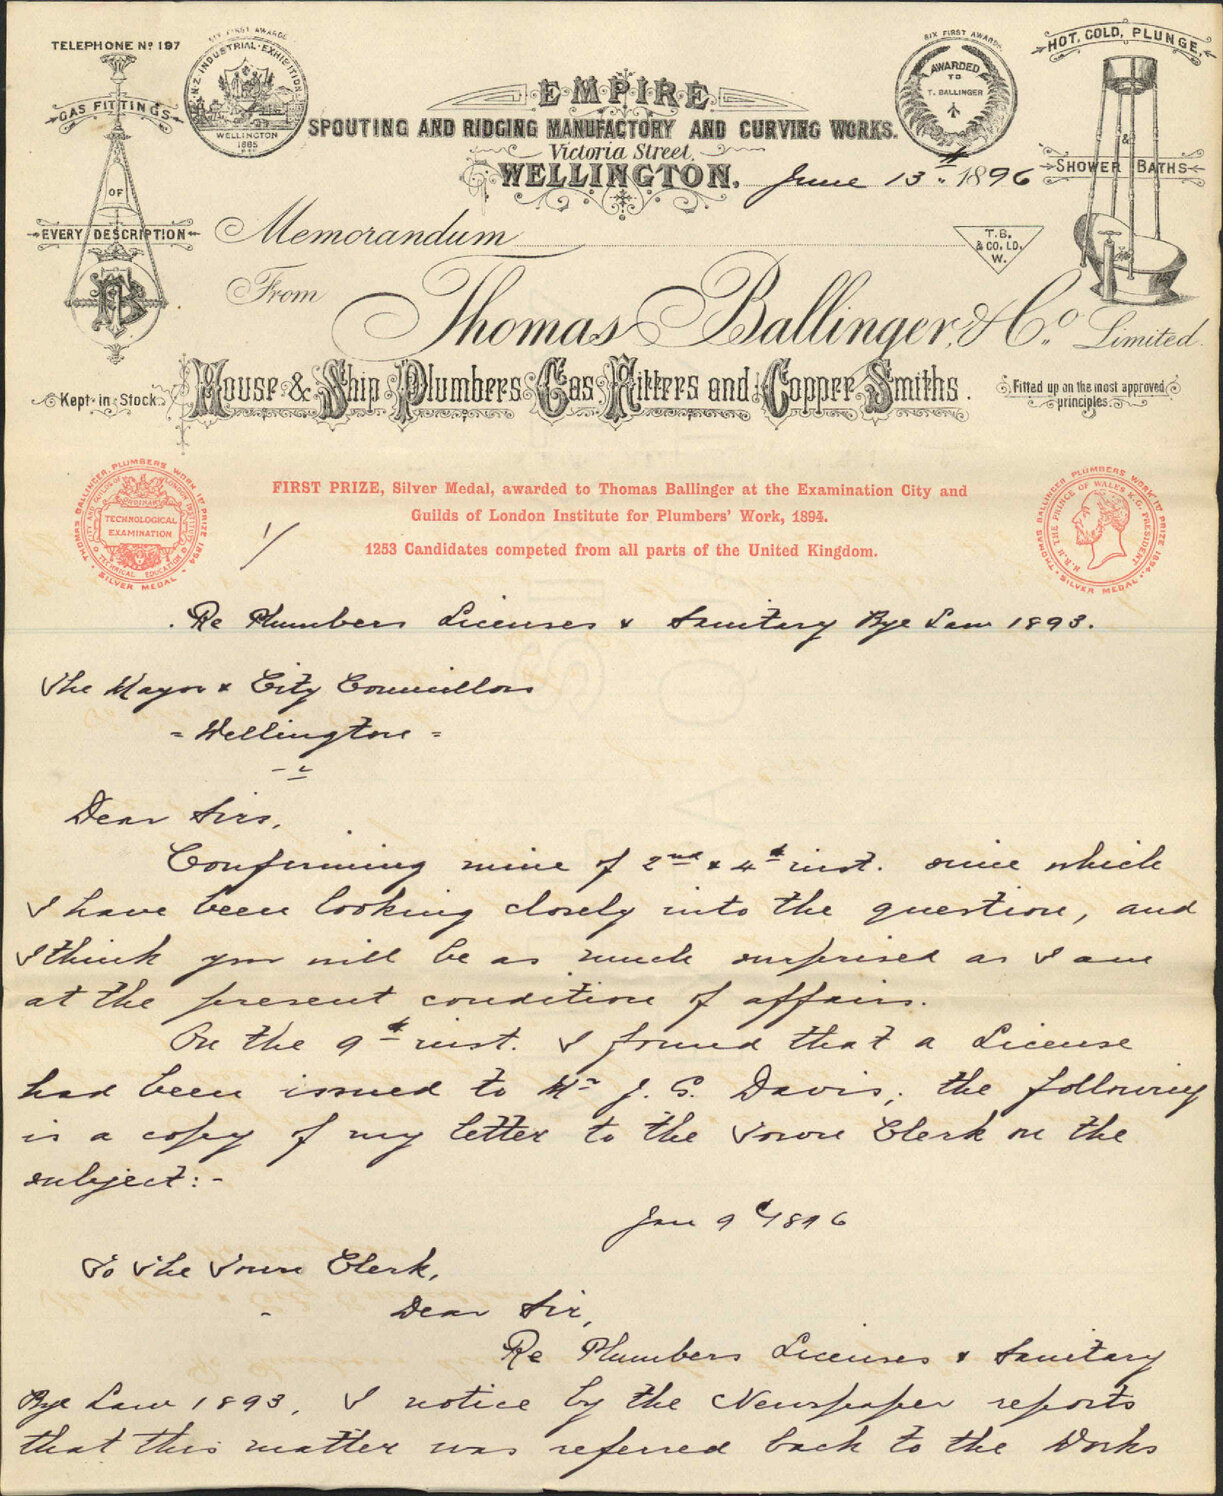 TELEPHONE No 197
GAS FITTINGS
OF
EVERY DESCRIPTION
TB
Kept in Stock
SIX FIRST AWARDS
N.Z. INDUSTRIAL EXHIBITION
WELLINGTON
1885
EMPIRE
SPOUTING AND RIDGING MANUFACTORY AND CURVING WORKS.
Victoria Street,
WELLINGTON, June 13th 1896
SIX FIRST AWARDS
AWARDED
TO
T. BALLINGER
HOT, COLD, PLUNGE,
&
SHOWER BATHS
Fitted up on the most approved
principles.
Memorandum
T.B.
& CO. LD.
W.
From Thomas Ballinger, & Co. Limited.
House & Ship Plumbers Gas Fitters and Copper Smiths.
THOMAS BALLINGER, PLUMBERS WORK 1ST PRIZE 1894
SILVER MEDAL
CITY AND GUILDS OF LONDON INSTITUTE
TECHNOLOGICAL
EXAMINATION
TECHNICAL EDUCATION
FIRST PRIZE, Silver Medal, awarded to Thomas Ballinger at the Examination City and
Guilds of London Institute for Plumbers' Work, 1894.
1253 Candidates competed from all parts of the United Kingdom.
THOMAS BALLINGER PLUMBERS WORK 1ST PRIZE 1894
SILVER MEDAL
H.R.H. THE PRINCE OF WALES K.G. PRESIDENT
1/
Re Plumbers Licenses & Sanitary Bye Law 1893.
The Mayor & City Councillors
= Wellington =
Dear Sirs,
Confirming mine of 2nd & 4th inst. since which
I have been looking closely into the question, and
I think you will be as much surprised as I am
at the present condition of affairs.
On the 9th inst. I found that a License
had been issued to Mr J. G. Davis, the following
is a copy of my letter to the Town Clerk on the
subject:-
June 9th 1896
To The Town Clerk,
Dear Sir,
Re Plumbers Licenses & Sanitary
Bye Law 1893, I notice by the Newspaper reports
that this matter was referred back to the Works